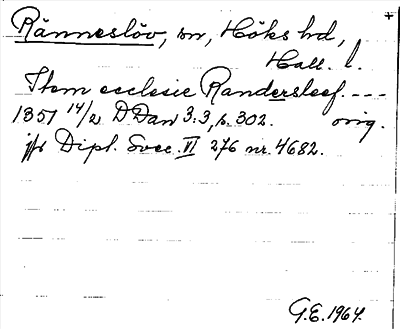 Ränneslöv, sn, Höks hd,
Hall. l.
Item ecclesie Randersleef. ---
1351 14/2 D Dan 3.3, s. 302. orig.
jfr Dipl. Svec. VI 276 nr. 4682.
G.E. 1964.